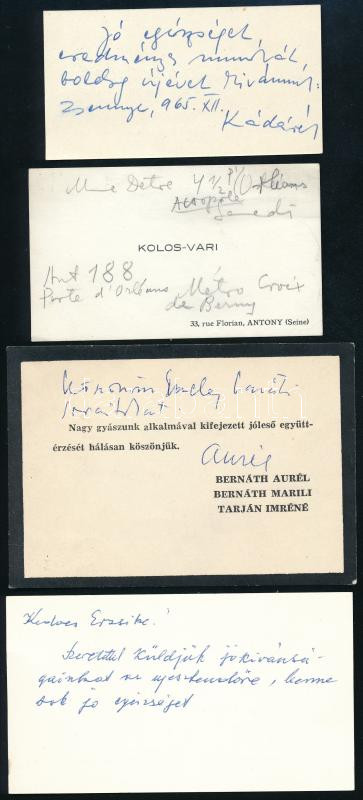 Jó egészséget,
eredményes munkát,
boldog újévet kívánunk:
Zsennye, 965. XII.
Kádárék
Mme Detre 4 1/2 Pl/Orléans
Acropole
Samedi
KOLOS-VARI
Aut 188
Porte d'Orléans Métro Croix
de Berny
33, rue Florian, ANTONY (Seine)
Köszönöm baráti
sorait
Nagy gyászunk alkalmával kifejezett jóleső együtt-
érzését hálásan köszönjük.
Aurél
BERNÁTH AURÉL
BERNÁTH MARILI
TARJÁN IMRÉNÉ
Kedves Erzsike!
Szeretettel küldjük jókívánsá-
gainkat az ujesztendőre, benne
sok jó egészséget